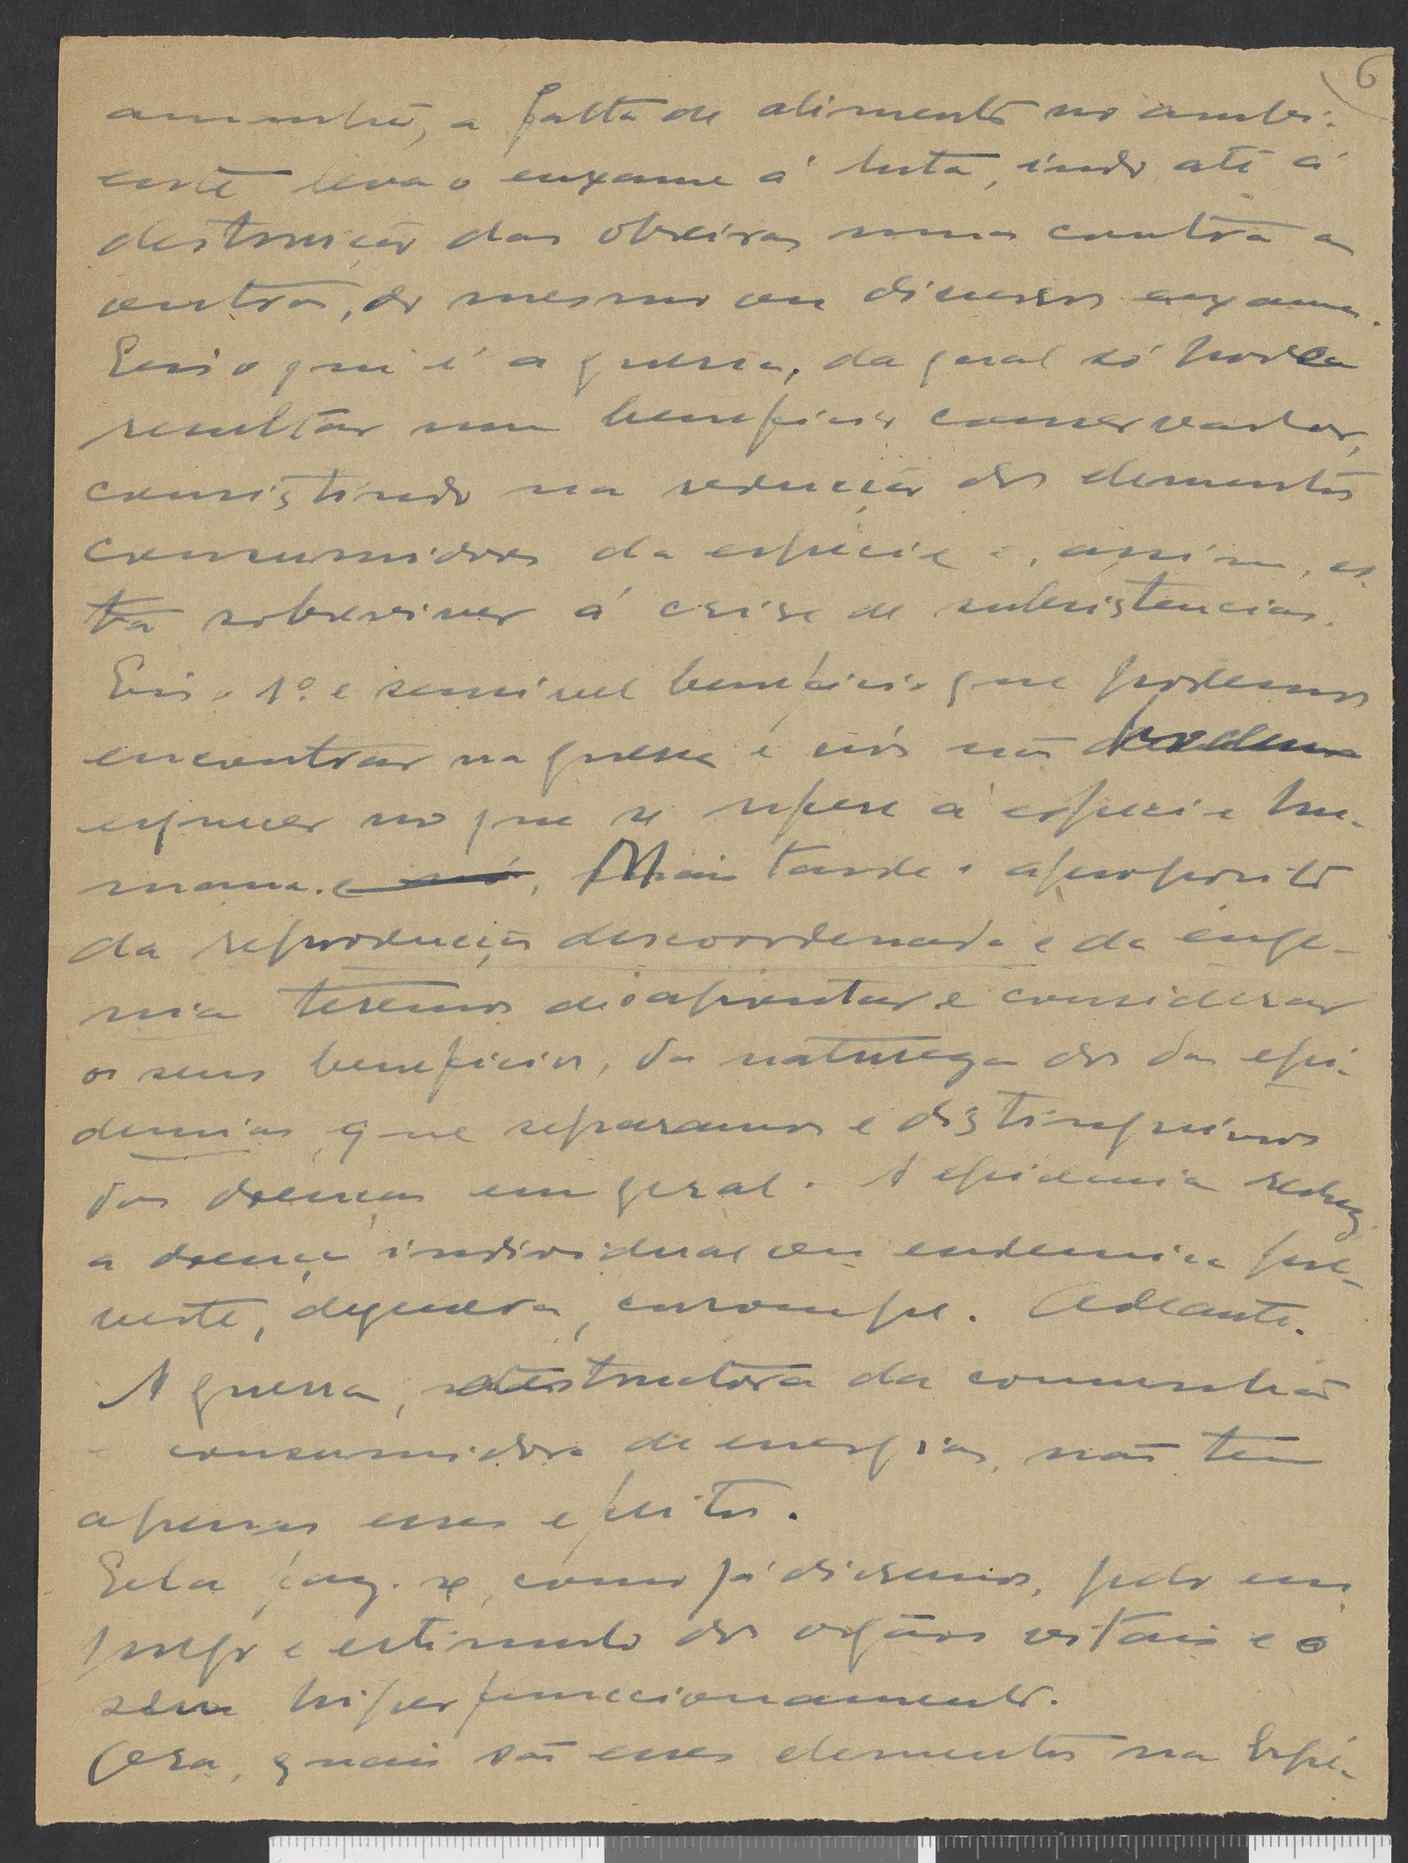 6
amanhã, a falta de alimento no ambi-
ente leva o enxame á luta, indo até á
destruição das obreiras umas contra as
outras, do mesmo ou diversos enxames.
Eis o que é a guerra, da qual só poderá
resultar um beneficio conservador,
consistindo na redução dos elementos
consumidores da espécie e, assim, es-
ta sobreviver á crise de subsistencias.
Eis o 1º e sensivel beneficio que podemos
encontrar na guerra e nós não podemos
esquecer no que se refere á especie hu-
mana. Mais tarde a proposito
da reprodução descoordenada e da euge-
nia teremos de apontar e considerar
os seus beneficios, da natureza dos das epi-
demias, que separamos e distinguimos
das doenças em geral. A epidemia reduz
a doença individual ou endemica per-
verte, degenera, corrompe. Adeante.
A guerra, destruidora da comunhão
e consumidora de energias, não tem
apenas esses efeitos.
Ela faz-se, como já dissemos, pelo em-
prego e estimulo dos orgãos vitais e o
seu hiperfuncionamento.
Ora, quais são esses elementos na Espé-